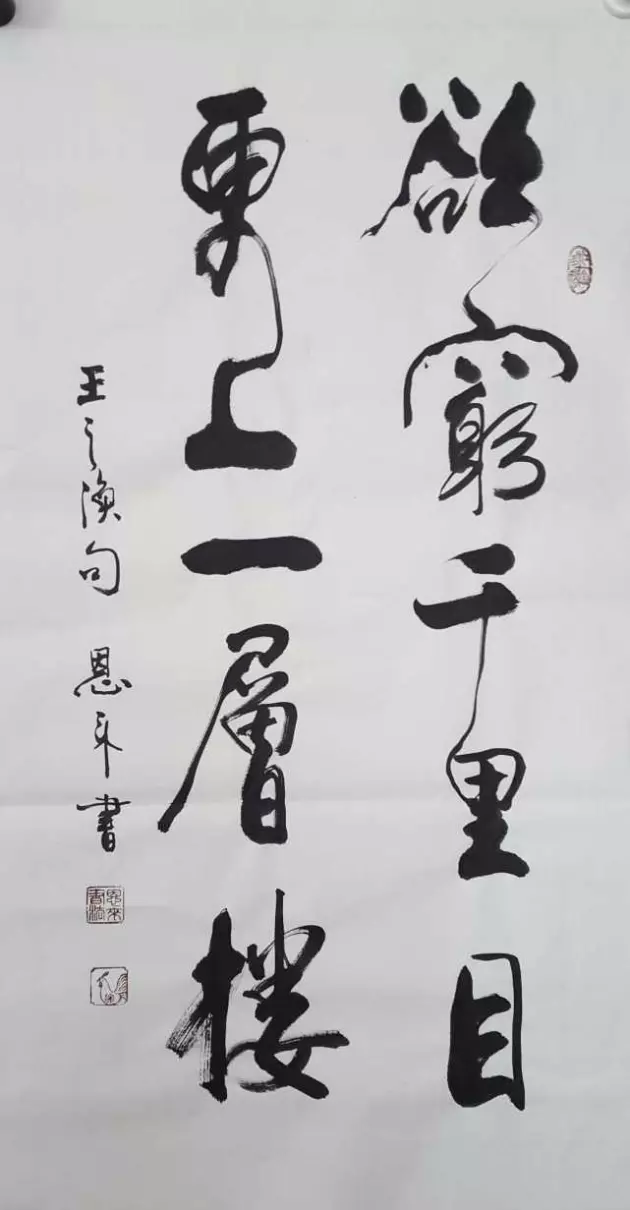 欲窮千里目
更上一層樓
王之渙句 恩来書